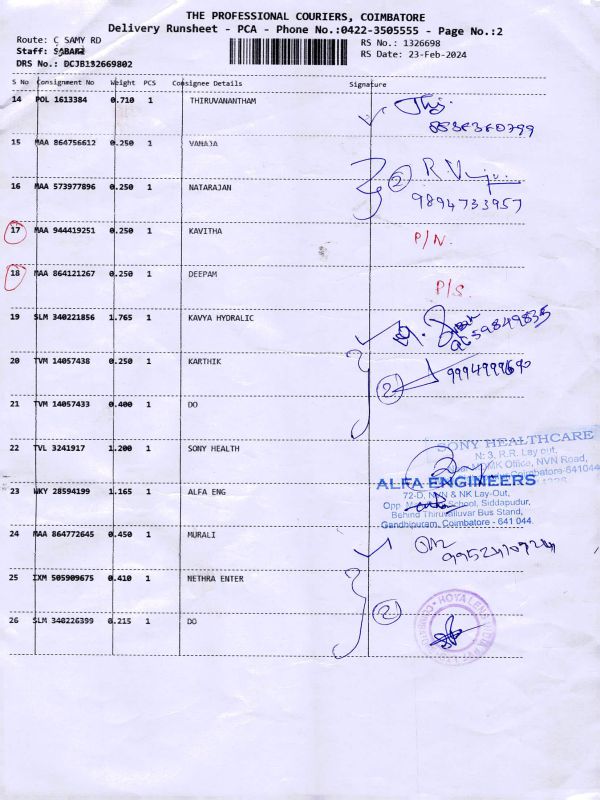 THE PROFESSIONAL COURIERS, COIMBATORE
Delivery Runsheet - PCA - Phone No.:0422-3505555 - Page No.:2
Route: C SAMY RD
RS No.: 1326698
Staff:
RS Date: 23-Feb-2024
DRS No.: DCJB132669802
S No Consignment No Weight PCS Consignee Details Signature
14 POL 1613384 0.710 1 THIRUVANANTHAM
15 MAA 864756612 0.250 1 VANAJA
2 R.V
16 MAA 573977896 0.250 1 NATARAJAN
9894733957
17 MAA 944419251 0.250 1 KAVITHA P/N.
18 MAA 864121267 0.250 1 DEEPAM P/S.
19 SLM 340221856 1.765 1 KAVYA HYDRALIC
20 TVM 14057438 0.250 1 KARTHIK
2
21 TVM 14057433 0.400 1 DO
SONY HEALTHCARE
22 TVL 3241917 1.200 1 SONY HEALTH
N: 3, R.R. Lay out,
Office, NVN Road,
Coimbatore-641044
ALFA ENGINEERS
23 WKY 28594199 1.165 1 ALFA ENG
72-D, NVN & NK Lay-Out,
Opp. School, Siddapudur,
Behind Thiruvalluvar Bus Stand,
Gandhipuram, Coimbatore - 641 044.
24 MAA 864772645 0.450 1 MURALI
25 IXM 505909675 0.410 1 NETHRA ENTER
2
26 SLM 340226399 0.215 1 DO